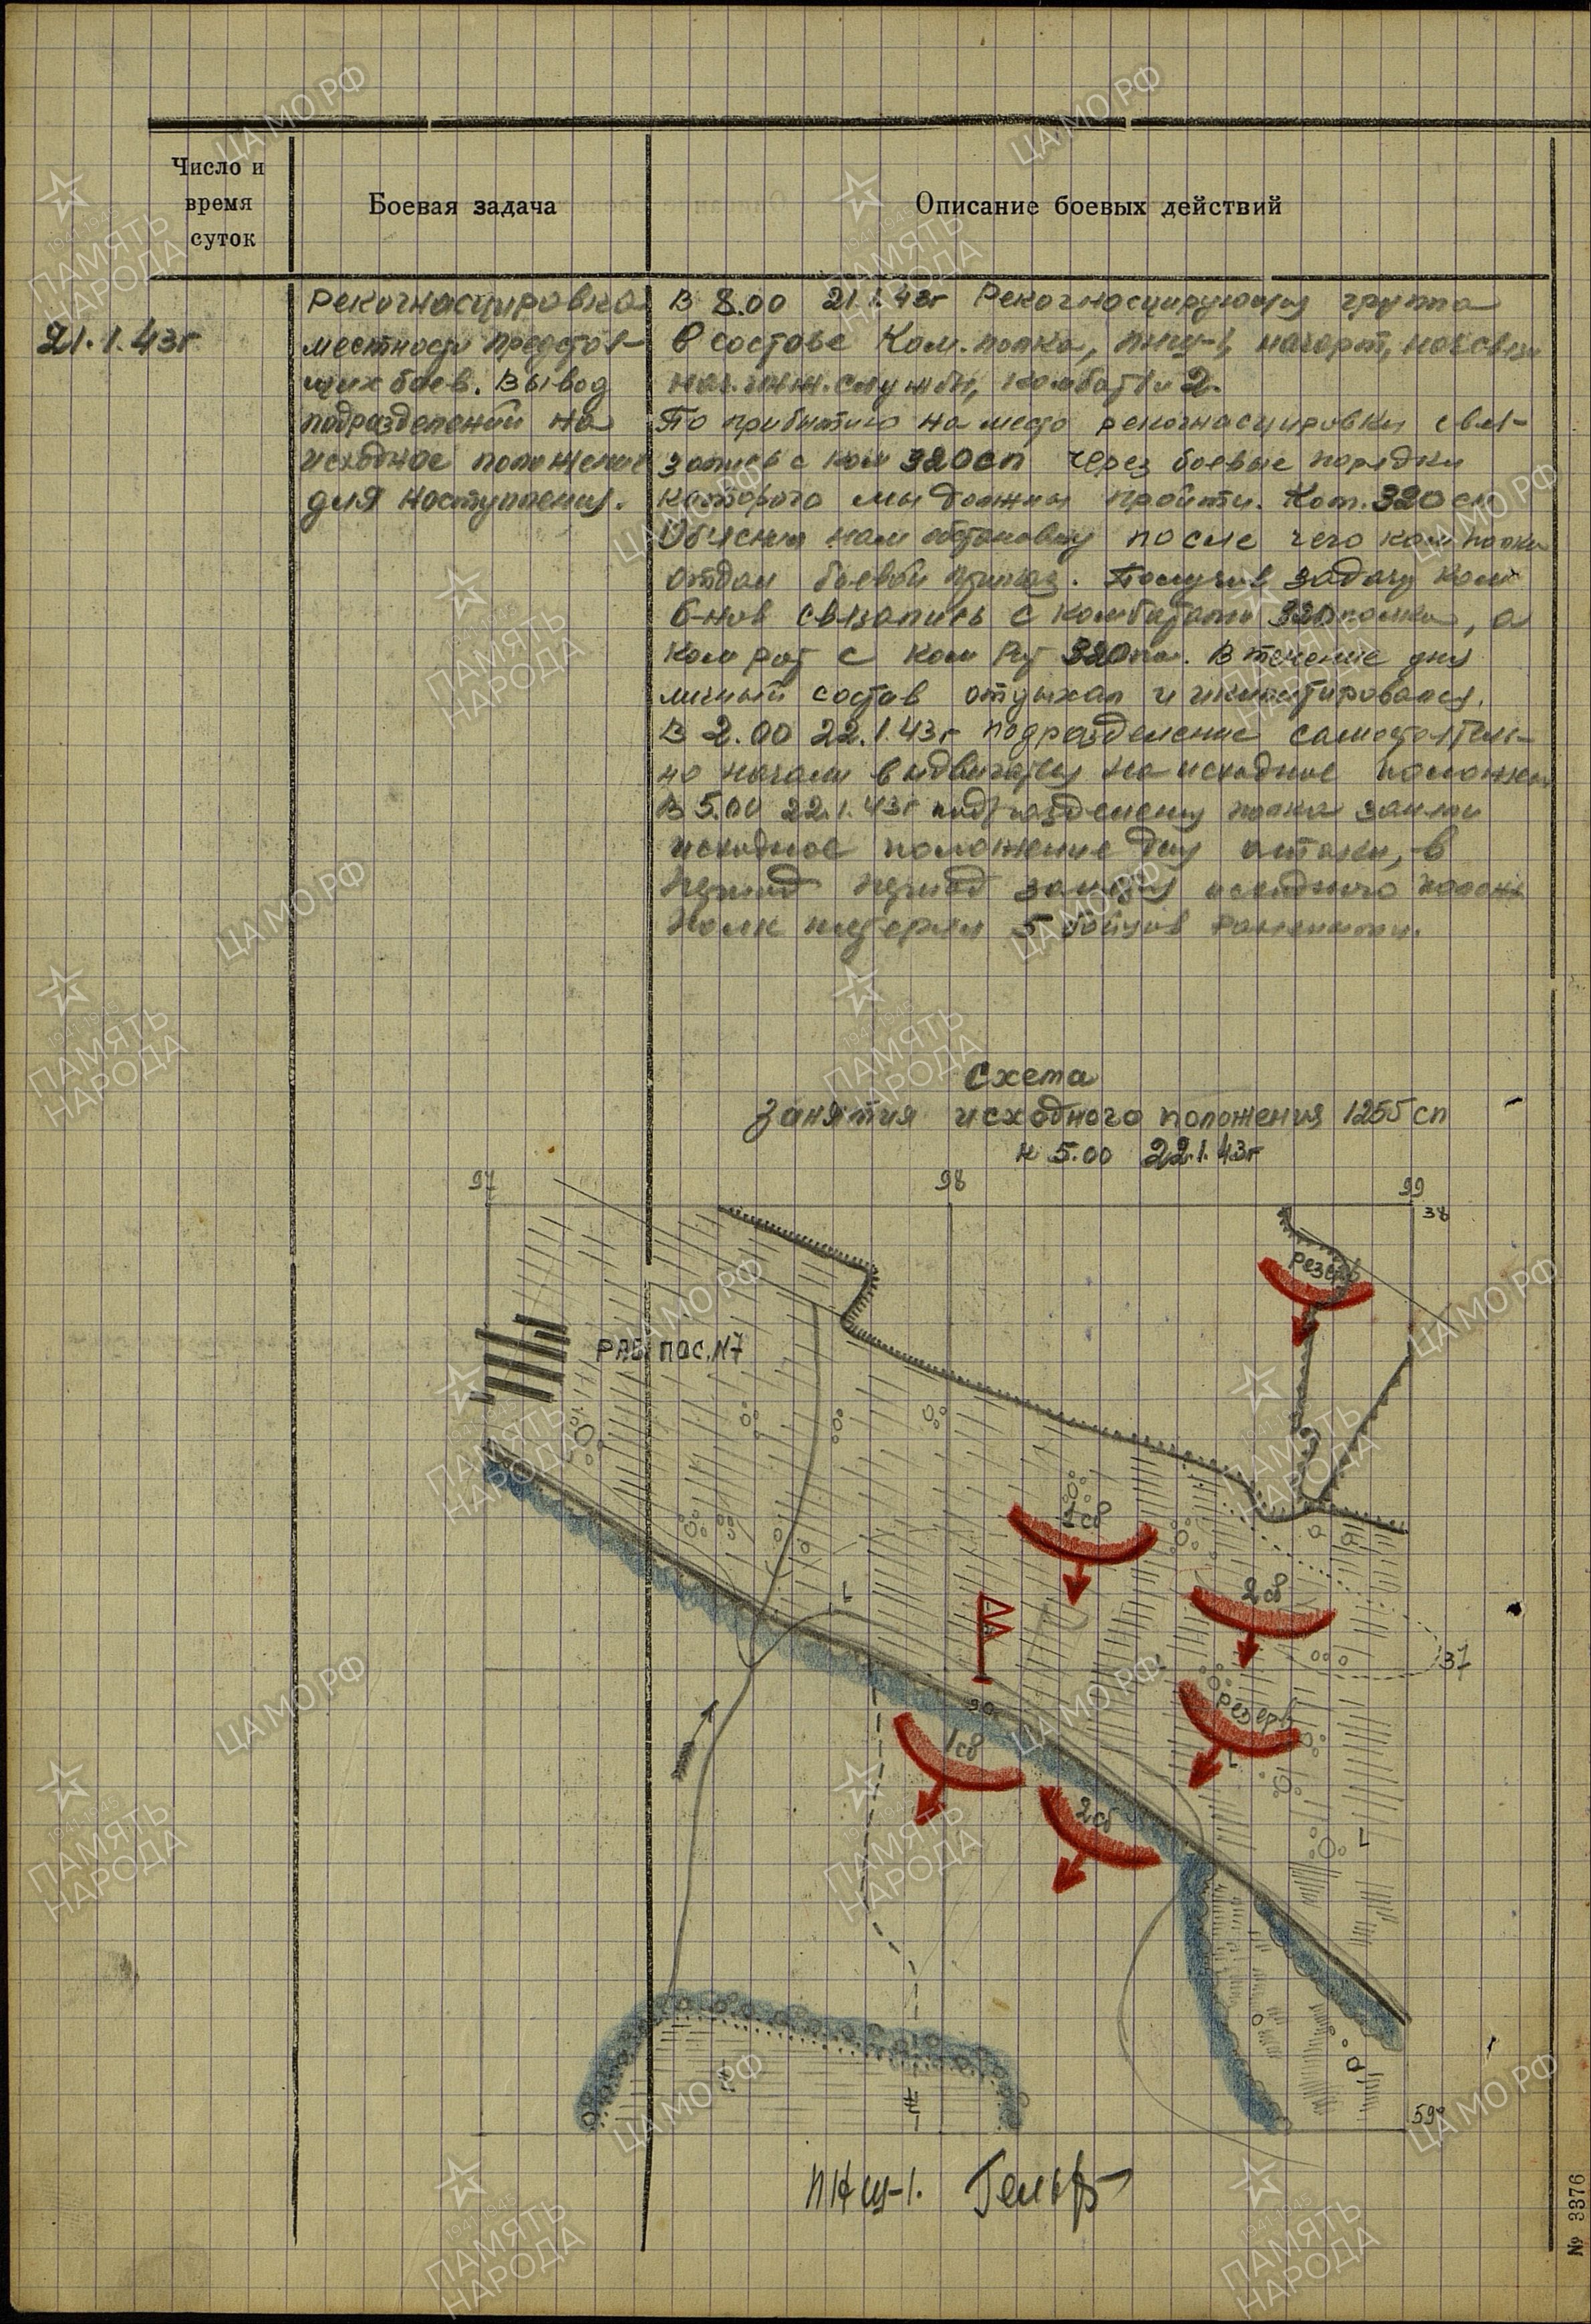 Число и
время
суток
Боевая задача
Описание боевых действий
21.1.43г
Рекогнасцировка
местности предстоя-
щих боев. Вывод
подразделений на
исходное положение
для наступления.
В 8.00 21.1.43г Рекогнасцирующая группа
в составе Ком. полка, пнш-1, начарт, нач связи
нач. инж. службы, комбат 1 и 2.
По прибытию на место рекогнасцировки свя-
зались с ком 320сп через боевые порядки
которого мы должны пройти. Ком. 320 сп
Объяснил нам обстановку после чего ком полка
отдал боевой приказ. Получив задачу ком
б-нов связались с комбатами 320 полка, а
ком рот с ком рот 320сп. В течение дня
личный состав отдыхал и экипировался.
В 2.00 22.1.43г подразделение самостоятель-
но начали выдвигаться на исходное положен
В 5.00 22.1.43г подразделения полка заняли
исходное положение для атаки, в
период период занятия исходного полож
полк потерял 5 бойцов ранеными.
Схема
Занятия исходного положения 1255 сп
к 5.00 22.1.43г
97
98
99
38
Резерв
РАБ. ПОС. N7
1 сб
2 сб
37
резерв
1 сб
2 сб
59
ПНШ-1.
№ 3376
ЦАМО РФ
1941-1945
ПАМЯТЬ
НАРОДА